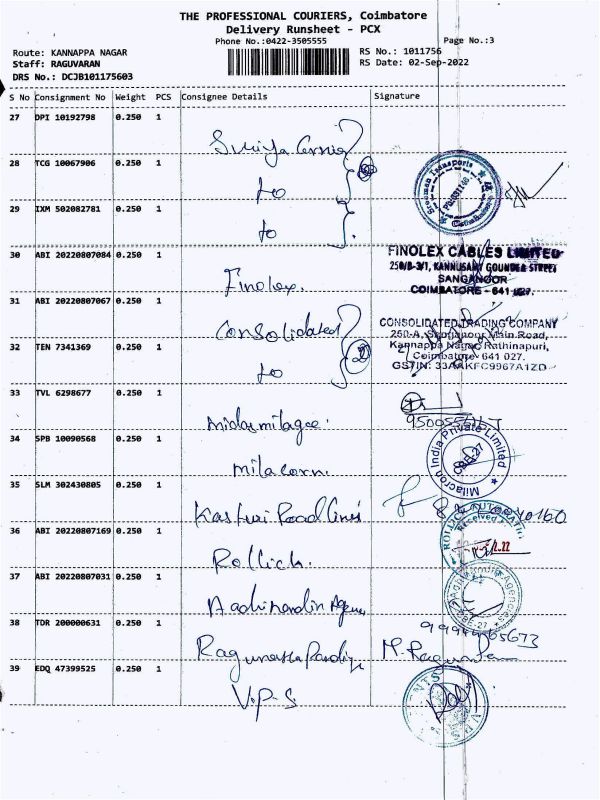 THE PROFESSIONAL COURIERS, Coimbatore
Delivery Runsheet - PCX
Phone No.:0422-3505555
Page No.:3
Route: KANNAPPA NAGAR
Staff: RAGUVARAN
DRS No.: DCJB101175603
RS No.: 1011756
RS Date: 02-Sep-2022
S No Consignment No Weight PCS Consignee Details Signature
27 DPI 10192798 0.250 1
28 TCG 10067906 0.250 1 to
29 IXM 502082781 0.250 1 to
30 ABI 20220807084 0.250 1 Finolex.
FINOLEX CABLES LIMITED
250/B-3/1, KANNUSAMY GOUNDER STREET
SANGANOOR
COIMBATORE - 641 027.
31 ABI 20220807067 0.250 1 Consolidated
CONSOLIDATED TRADING COMPANY
250-A, Sanganoor Main Road,
Kannappa Nagar, Rathinapuri,
Coimbatore - 641 027.
GSTIN: 33AAKFC9967A1ZD
32 TEN 7341369 0.250 1 to
33 TVL 6298677 0.250 1
34 SPB 10090568 0.250 1 milacorn.
Milacron India Private Limited
CBE-27
35 SLM 302430805 0.250 1 Kasturi Roadlines
36 ABI 20220807169 0.250 1 Rollick.
37 ABI 20220807031 0.250 1
Agencies
38 TDR 200000631 0.250 1
M. Raguvaran
39 EDQ 47399525 0.250 1 V.P.S.